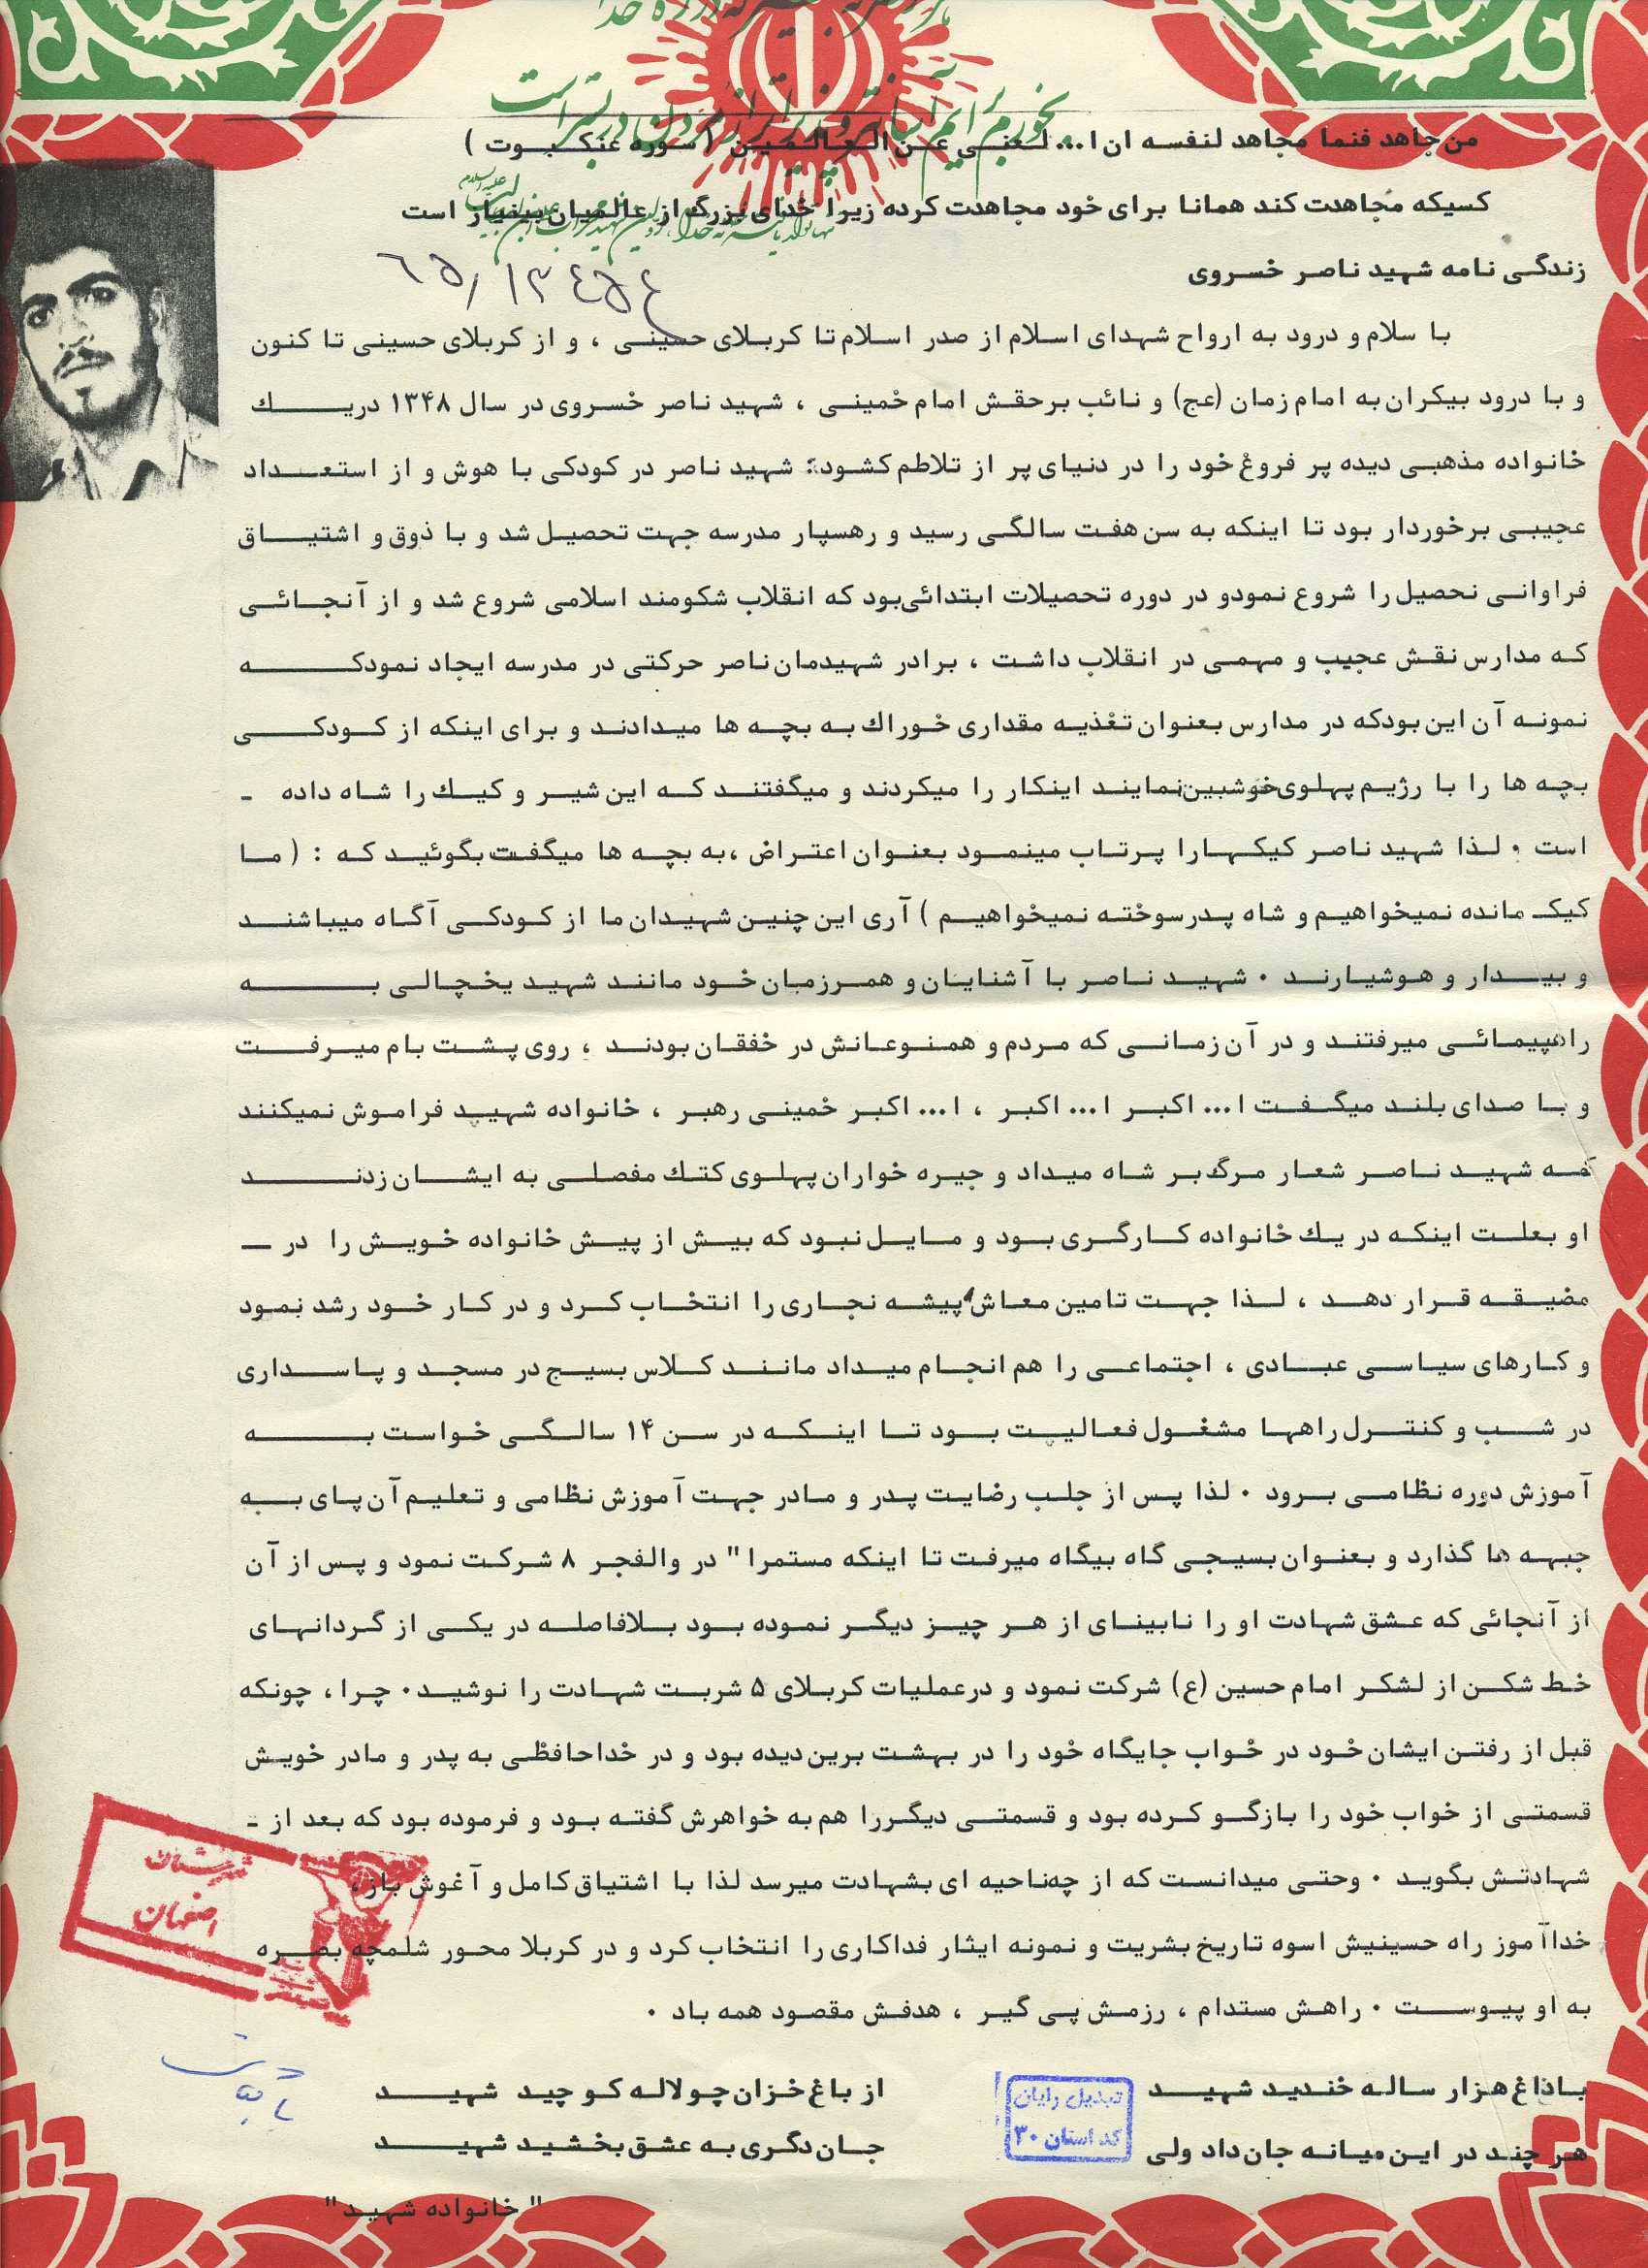 من جاهد فنما مجاهد لنفسه ان ا... لغنی عن العالمین ( سوره عنکبوت )
کسیکه مجاهدت کند همانا برای خود مجاهدت کرده زیرا خدای بزرگ از عالمیان بینیاز است
زندگی نامه شهید ناصر خسروی
۶۵/۱۳۴۵۴
با سلام و درود به ارواح شهدای اسلام از صدر اسلام تا کربلای حسینی ، و از کربلای حسینی تا کنون
و با درود بیکران به امام زمان (عج) و نائب برحقش امام خمینی ، شهید ناصر خسروی در سال ۱۳۴۸ دریك
خانواده مذهبی دیده پر فروغ خود را در دنیای پر از تلاطم کشود؛ شهید ناصر در کودکی با هوش و از استعداد
عجیبی برخوردار بود تا اینکه به سن هفت سالگی رسید و رهسپار مدرسه جهت تحصیل شد و با ذوق و اشتیاق
فراوانی نحصیل را شروع نمودو در دوره تحصیلات ابتدائی بود که انقلاب شکومند اسلامی شروع شد و از آنجائی
که مدارس نقش عجیب و مهمی در انقلاب داشت ، برادر شهیدمان ناصر حرکتی در مدرسه ایجاد نمودکه
نمونه آن این بودکه در مدارس بعنوان تغذیه مقداری خوراك به بچه ها میدادند و برای اینکه از کودکی
بچه ها را با رژیم پهلوی خوشبین نمایند اینکار را میکردند و میگفتند که این شیر و کیك را شاه داده -
است . لذا شهید ناصر کیکهارا پرتاب مینمود بعنوان اعتراض ،به بچه ها میگفت بگوئید که : ( ما
کیک مانده نمیخواهیم و شاه پدرسوخته نمیخواهیم ) آری این چنین شهیدان ما از کودکی آگاه میباشند
و بیدار و هوشیارند . شهید ناصر با آشنایان و همرزمان خود مانند شهید یخچالی به
راهپیمائی میرفتند و در آن زمانی که مردم و همنوعانش در خفقان بودند ، روی پشت بام میرفت
و با صدای بلند میگفت ا... اکبر ا... اکبر ، ا... اکبر خمینی رهبر ، خانواده شهید فراموش نمیکنند
که شهید ناصر شعار مرگ بر شاه میداد و جیره خواران پهلوی کتك مفصلی به ایشان زدند
او بعلت اینکه در یك خانواده کارگری بود و مایل نبود که بیش از پیش خانواده خویش را در -
مضیقه قرار دهد ، لذا جهت تامین معاش پیشه نجاری را انتخاب کرد و در کار خود رشد نمود
و کارهای سیاسی عبادی ، اجتماعی را هم انجام میداد مانند کلاس بسیج در مسجد و پاسداری
در شب و کنترل راهها مشغول فعالیت بود تا اینکه در سن ۱۴ سالگی خواست به
آموزش دوره نظامی برود . لذا پس از جلب رضایت پدر و مادر جهت آموزش نظامی و تعلیم آن پای به
جبهه ها گذارد و بعنوان بسیجی گاه بیگاه میرفت تا اینکه مستمرا " در والفجر ۸ شرکت نمود و پس از آن
از آنجائی که عشق شهادت او را نابینای از هر چیز دیگر نموده بود بلافاصله در یکی از گردانهای
خط شکن از لشکر امام حسین (ع) شرکت نمود و درعملیات کربلای ۵ شربت شهادت را نوشید. چرا ، چونکه
قبل از رفتن ایشان خود در خواب جایگاه خود را در بهشت برین دیده بود و در خداحافظی به پدر و مادر خویش
قسمتی از خواب خود را بازگو کرده بود و قسمتی دیگررا هم به خواهرش گفته بود و فرموده بود که بعد از -
شهادتش بگوید . وحتی میدانست که از چه ناحیه ای بشهادت میرسد لذا با اشتیاق کامل و آغوش باز،
خداآموز راه حسینیش اسوه تاریخ بشریت و نمونه ایثار فداکاری را انتخاب کرد و در کربلا محور شلمچه بصره
به او پیوست . راهش مستدام ، رزمش پی گیر ، هدفش مقصود همه باد .
شهرستان
اصفهان
باداغ هزار ساله خندید شهید از باغ خزان چو لاله کو چید شهید
هر چند در این میانه جان داد ولی جان دگری به عشق بخشید شهید
تبدیل رایان
کد استان ۳۰
" خانواده شهید "